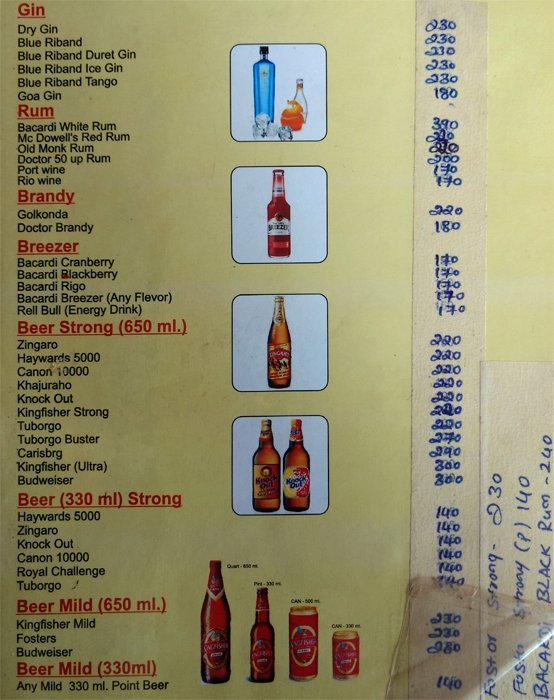 Gin
Dry Gin 230
Blue Riband 230
Blue Riband Duret Gin 230
Blue Riband Ice Gin 230
Blue Riband Tango 230
Goa Gin 180
Rum
Bacardi White Rum 390
Mc Dowell's Red Rum
Old Monk Rum
Doctor 50 up Rum 200
Port wine 170
Rio wine 170
Brandy
Golkonda 220
Doctor Brandy 180
Breezer
Bacardi Cranberry 170
Bacardi Blackberry 170
Bacardi Rigo 170
Bacardi Breezer (Any Flevor) 170
Rell Bull (Energy Drink) 170
Beer Strong (650 ml.)
Zingaro 220
Haywards 5000 220
Canon 10000 220
Khajuraho 220
Knock Out 220
Kingfisher Strong
Tuborgo 220
Tuborgo Buster 270
Carisbrg 290
Kingfisher (Ultra) 300
Budweiser 300
Beer (330 ml) Strong
Haywards 5000 140
Zingaro 140
Knock Out 140
Canon 10000 140
Royal Challenge 140
Tuborgo 140
Beer Mild (650 ml.)
Kingfisher Mild 230
Fosters 230
Budweiser 280
Beer Mild (330ml)
Any Mild 330 ml. Point Beer 140
BREEZER
ZINGARO
Knock Out
Knock Out
Quart - 650 ml.
Pint - 330 ml.
CAN - 500 ml.
CAN - 330 ml.
KINGFISHER
Fostor Strong - 230
Fosto Strong (P) 140
BACARDI BLACK Rum - 240